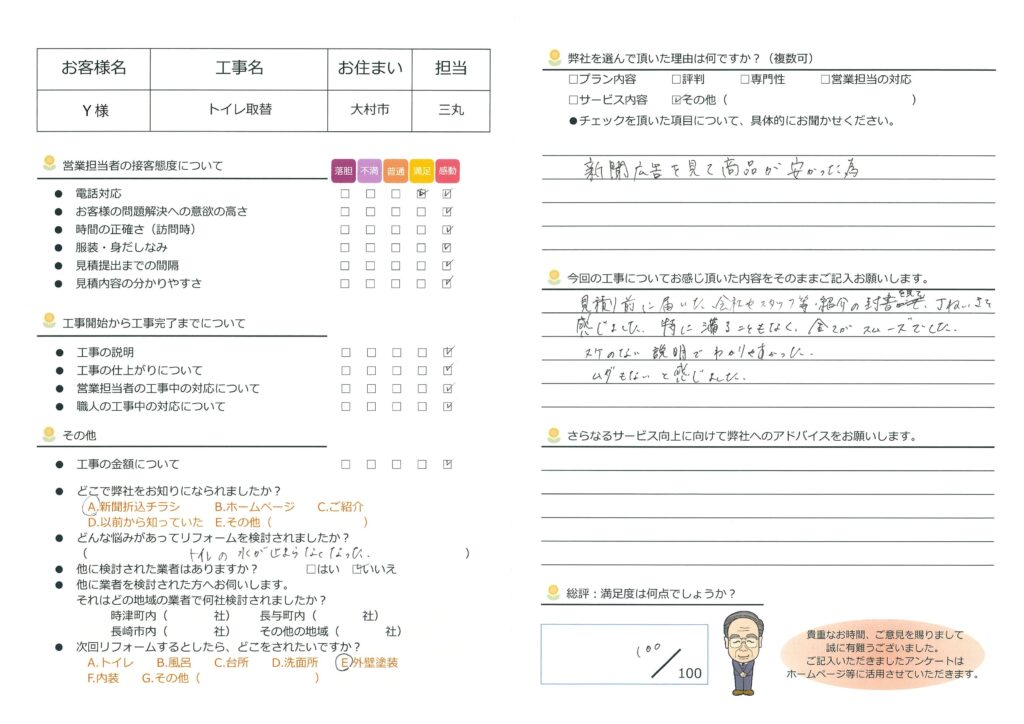 お客様名 工事名 お住まい 担当
Y様 トイレ取替 大村市 三丸
営業担当者の接客態度について
落胆 不満 普通 満足 感動
● 電話対応 □ □ □ ☑ ☑
● お客様の問題解決への意欲の高さ □ □ □ □ ☑
● 時間の正確さ（訪問時） □ □ □ □ ☑
● 服装・身だしなみ □ □ □ □ ☑
● 見積提出までの間隔 □ □ □ □ ☑
● 見積内容の分かりやすさ □ □ □ □ ☑
工事開始から工事完了までについて
● 工事の説明 □ □ □ □ ☑
● 工事の仕上がりについて □ □ □ □ ☑
● 営業担当者の工事中の対応について □ □ □ □ ☑
● 職人の工事中の対応について □ □ □ □ ☑
その他
● 工事の金額について □ □ □ □ ☑
● どこで弊社をお知りになられましたか？
A.新聞折込チラシ B.ホームページ C.ご紹介
D.以前から知っていた E.その他（ ）
● どんな悩みがあってリフォームを検討されましたか？
（ トイレの水が止まらなくなった. ）
● 他に検討された業者はありますか？ □はい ☑いいえ
● 他に業者を検討された方へお伺いします。
それはどの地域の業者で何社検討されましたか？
時津町内（ 社） 長与町内（ 社）
長崎市内（ 社） その他の地域（ 社）
● 次回リフォームするとしたら、どこをされたいですか？
A.トイレ B.風呂 C.台所 D.洗面所 E.外壁塗装
F.内装 G.その他（ ）
弊社を選んで頂いた理由は何ですか？（複数可）
□プラン内容 □評判 □専門性 □営業担当の対応
□サービス内容 ☑その他（ ）
●チェックを頂いた項目について、具体的にお聞かせください。
新聞広告を見て商品が安かった為
今回の工事についてお感じ頂いた内容をそのままご記入お願いします。
見積り前に届いた、会社やスタッフ等・紹介の封書を見て、ていねいさを
感じました. 特に 困ることもなく、全てが スムーズでした.
説明で わかりやすかった.
ムダもないと感じました.
さらなるサービス向上に向けて弊社へのアドバイスをお願いします。
総評：満足度は何点でしょうか？
100／100
貴重なお時間、ご意見を賜りまして
誠に有難うございました。
ご記入いただきましたアンケートは
ホームページ等に活用させていただきます。